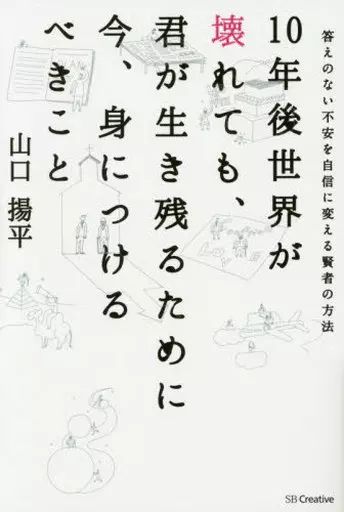 答えのない不安を自信に変える賢者の方法
10年後世界が
壊れても、
君が生き残るために
今、身につける
べきこと
山口 揚平
SB Creative